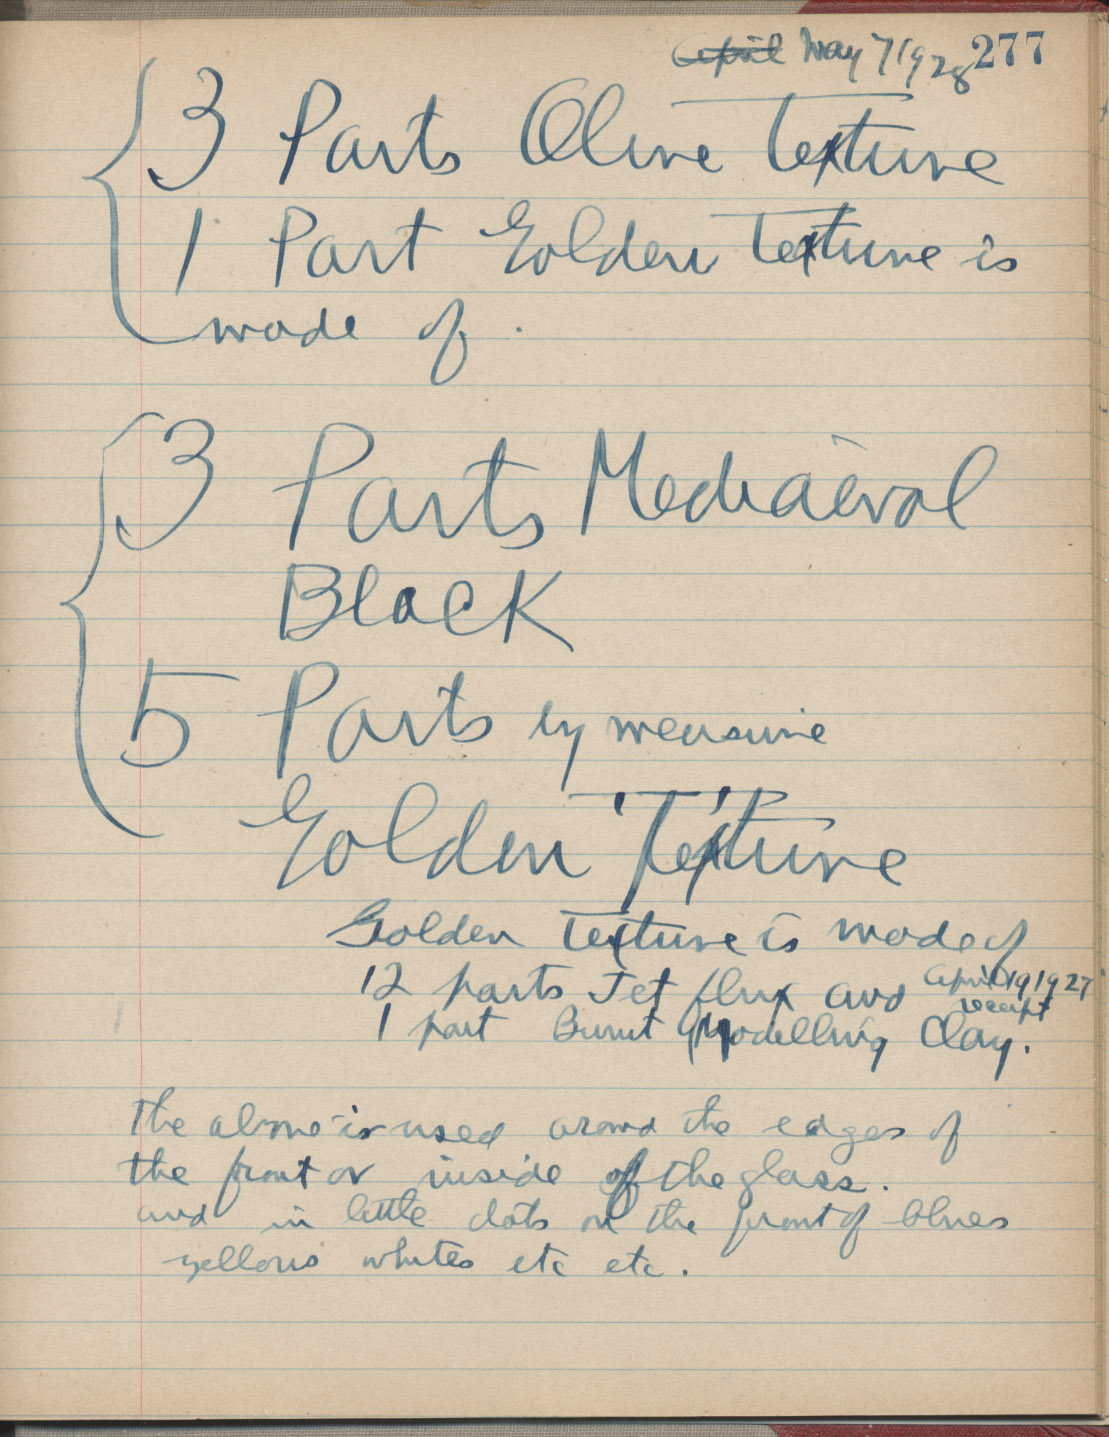 April May 7 1928 277
3 Parts Olive Texture
1 Part Golden Texture is
made of.
3 Parts Mediaeval
Black
5 Parts by measure
Golden Texture
Golden Texture is made of
12 parts Jet flux and April 19 1927
receipt
1 part Burnt Modelling Clay.
The above is used around the edges of
the front or inside of the glass.
and in little dots on the front of blues
yellows whites etc etc.